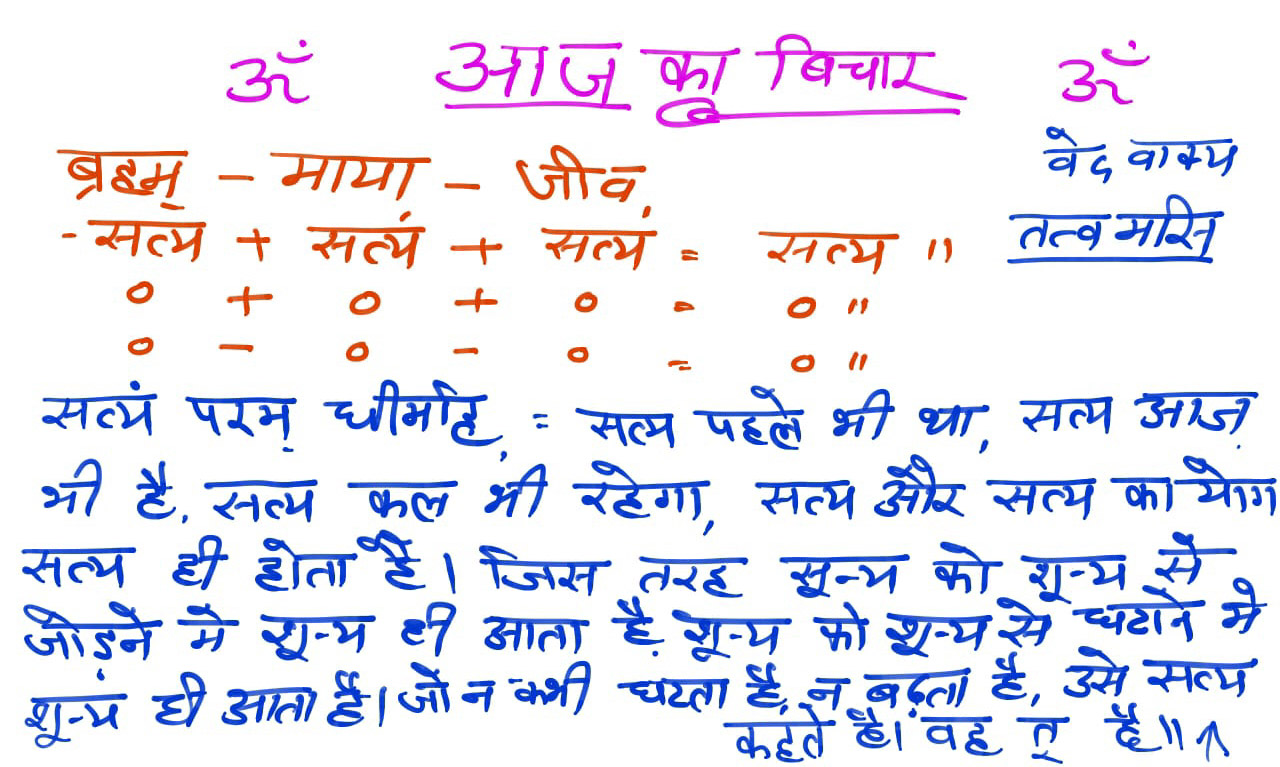 ॐ आज का बिचार ॐ
वेद वाक्य
ब्रह्म् - माया - जीव,
तत्व मसि
- सत्य + सत्यं + सत्यं = सत्य "
0 + 0 + 0 = 0 "
0 - 0 - 0 = 0 "
सत्यं परम् धीमहि, = सत्य पहले भी था, सत्य आज
भी है, सत्य कल भी रहेगा, सत्य और सत्य का योग
सत्य ही होता है। जिस तरह सून्य को शून्य से
जोड़ने मे शून्य ही आता है, शून्य को शून्य से घटाने मे
शून्यं ही आता है। जो न कभी घटता है, न बढ़ता है, उसे सत्य
कहते है। वह तू है॥